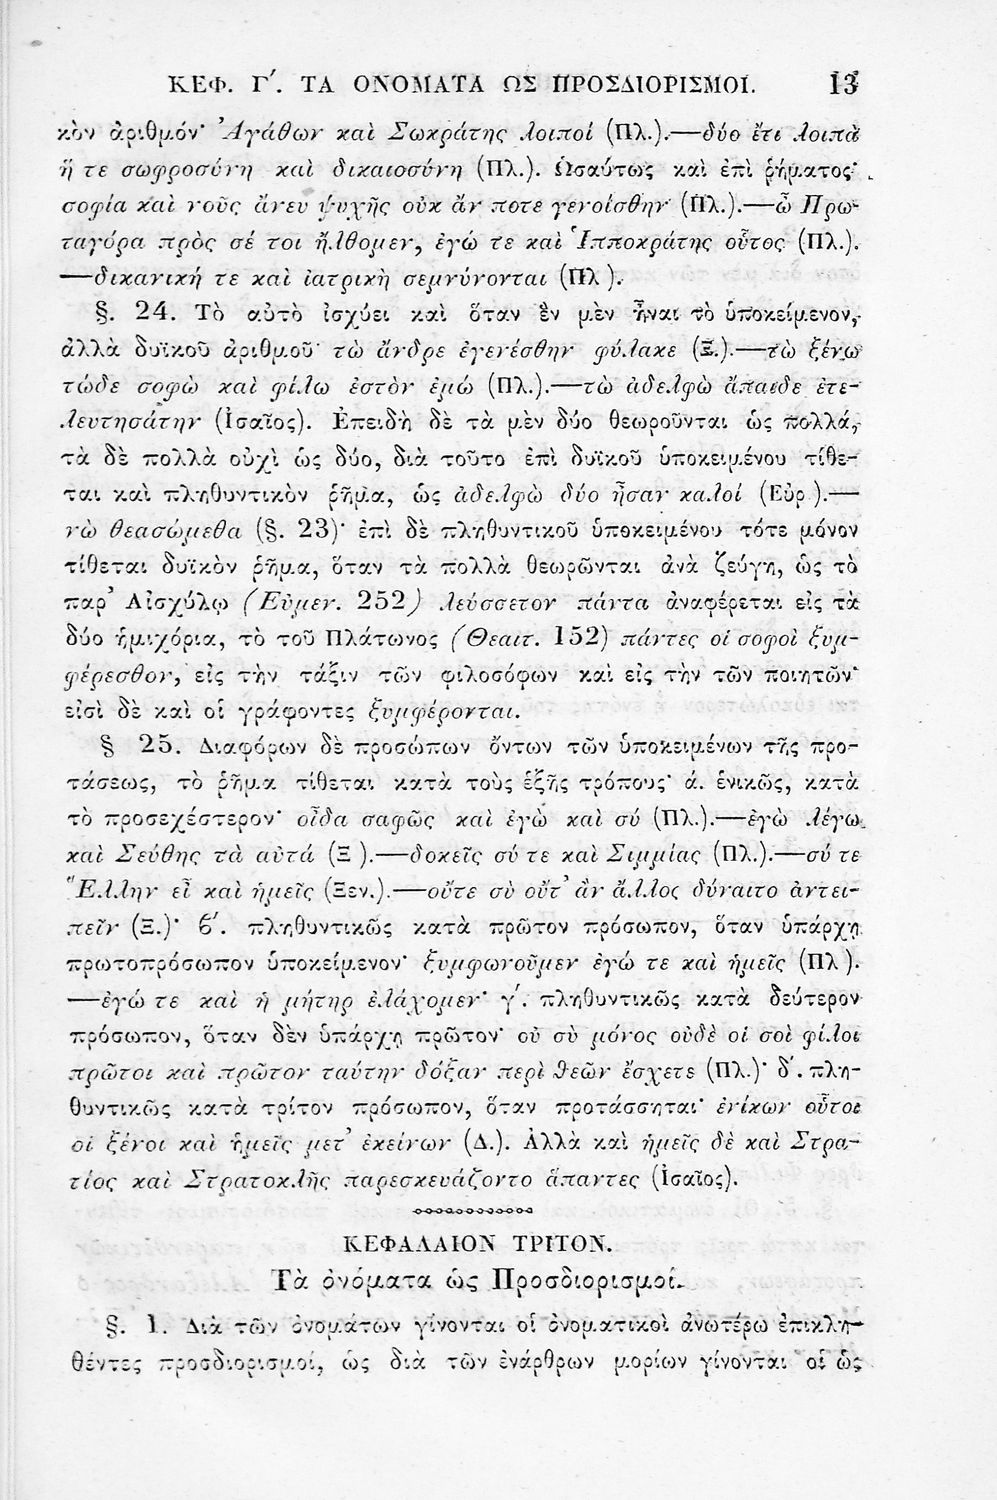 ΚΕΦ. Γʹ. ΤΑ ΟΝΟΜΑΤΑ ΩΣ ΠΡΟΣΔΙΟΡΙΣΜΟΙ. 13
κὸν ἀριθμόν· Ἀγάθων καὶ Σωκράτης λοιποί (Πλ.).—δύο ἔτι λοιπὰ
ἥ τε σωφροσύνη καὶ δικαιοσύνη (Πλ.). Ὡσαύτως καὶ ἐπὶ ῥήματος·
σοφία καὶ νοῦς ἄνευ ψυχῆς οὐκ ἄν ποτε γενοίσθην (Πλ.).—ὦ Πρω-
ταγόρα πρὸς σέ τοι ἤλθομεν, ἐγώ τε καὶ Ἱπποκράτης οὗτος (Πλ.).
—δικανική τε καὶ ἰατρικὴ σεμνύνονται (Πλ).
§. 24. Τὸ αὐτὸ ἰσχύει καὶ ὅταν ἓν μὲν ἦναι τὸ ὑποκείμενον,
ἀλλὰ δυϊκοῦ ἀριθμοῦ· τὼ ἄνδρε ἐγενέσθην φύλακε (Ξ.).—τὼ ξένω
τώδε σοφὼ καὶ φίλω ἐστὸν ἐμώ (Πλ.).—τὼ ἀδελφὼ ἄπαιδε ἐτε-
λευτησάτην (Ἰσαῖος). Ἐπειδὴ δὲ τὰ μὲν δύο θεωροῦνται ὡς πολλά,
τὰ δὲ πολλὰ οὐχὶ ὡς δύο, διὰ τοῦτο ἐπὶ δυϊκοῦ ὑποκειμένου τίθε-
ται καὶ πληθυντικὸν ῥῆμα, ὡς ἀδελφὼ δύο ἦσαν καλοί (Εὐρ.).—
νὼ θεασώμεθα (§. 23)· ἐπὶ δὲ πληθυντικοῦ ὑποκειμένου τότε μόνον
τίθεται δυϊκὸν ῥῆμα, ὅταν τὰ πολλὰ θεωρῶνται ἀνὰ ζεύγη, ὡς τὸ
παρ' Αἰσχύλῳ (Εὐμεν. 252) λεύσσετον πάντα ἀναφέρεται εἰς τὰ
δύο ἡμιχόρια, τὸ τοῦ Πλάτωνος (Θεαιτ. 152) πάντες οἱ σοφοὶ ξυμ-
φέρεσθον, εἰς τὴν τάξιν τῶν φιλοσόφων καὶ εἰς τὴν τῶν ποιητῶν·
εἰσὶ δὲ καὶ οἱ γράφοντες ξυμφέρονται.
§ 25. Διαφόρων δὲ προσώπων ὄντων τῶν ὑποκειμένων τῆς προ-
τάσεως, τὸ ῥῆμα τίθεται κατὰ τοὺς ἑξῆς τρόπους· ά. ἑνικῶς, κατὰ
τὸ προσεχέστερον· οἶδα σαφῶς καὶ ἐγὼ καὶ σύ (Πλ.).—ἐγὼ λέγω
καὶ Σεύθης τὰ αὐτά (Ξ ).—δοκεῖς σύ τε καὶ Σιμμίας (Πλ.).—σύ τε
Ἕλλην εἶ καὶ ἡμεῖς (Ξεν.).—οὔτε σὺ οὔτ' ἂν ἄλλος δύναιτο ἀντει-
πεῖν (Ξ.)· ϐʹ. πληθυντικῶς κατὰ πρῶτον πρόσωπον, ὅταν ὑπάρχῃ
πρωτοπρόσωπον ὑποκείμενον· ξυμφωνοῦμεν ἐγώ τε καὶ ἡμεῖς (Πλ).
—ἐγώ τε καὶ ἡ μήτηρ ἐλάχομεν· γʹ. πληθυντικῶς κατὰ δεύτερον
πρόσωπον, ὅταν δὲν ὑπάρχῃ πρῶτον· οὐ σὺ μόνος οὐδὲ οἱ σοὶ φίλοι
πρῶτοι καὶ πρῶτον ταύτην δόξαν περὶ θεῶν ἔσχετε (Πλ.)· δʹ. πλη-
θυντικῶς κατὰ τρίτον πρόσωπον, ὅταν προτάσσηται· ἐνίκων οὗτοι
οἱ ξένοι καὶ ἡμεῖς μετ' ἐκείνων (Δ.). Ἀλλὰ καὶ ἡμεῖς δὲ καὶ Στρα-
τίος καὶ Στρατοκλῆς παρεσκευάζοντο ἅπαντες (Ἰσαῖος).
ΚΕΦΑΛΑΙΟΝ ΤΡΙΤΟΝ.
Τὰ ὀνόματα ὡς Προσδιορισμοί.
§. 1. Διὰ τῶν ὀνομάτων γίνονται οἱ ὀνοματικοὶ ἀνωτέρω ἐπικλη-
θέντες προσδιορισμοί, ὡς διὰ τῶν ἐνάρθρων μορίων γίνονται οἱ ὡς